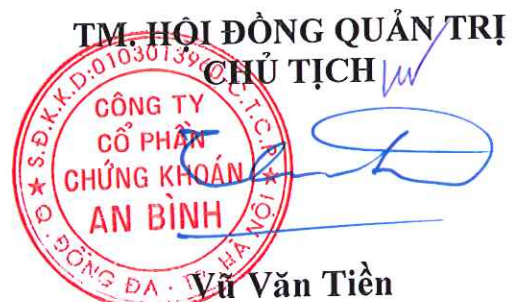 TM. HỘI ĐỒNG QUẢN TRỊ
CHỦ TỊCH
S.Đ.K.K.D:0103013960-C.T.C.P
CÔNG TY
CỔ PHẦN
CHỨNG KHOÁN
AN BÌNH
Q. ĐỐNG ĐA - TP. HÀ NỘI
Vũ Văn Tiền